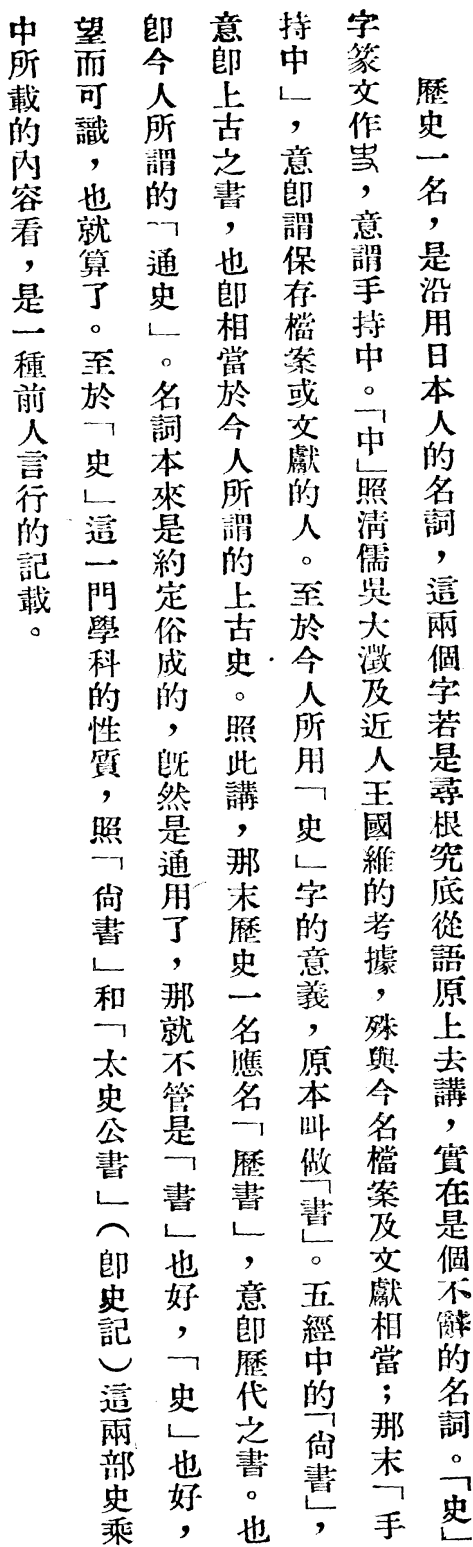 歷史一名，是沿用日本人的名詞，這兩個字若是尋根究底從語原上去講，實在是個不辭的名詞。「史」
字篆文作㕜，意謂手持中。「中」照淸儒吳大澂及近人王國維的考據，殊與今名檔案及文獻相當；那末「手
持中」，意卽謂保存檔案或文獻的人。至於今人所用「史」字的意義，原本叫做「書」。五經中的「尙書」，
意卽上古之書，也卽相當於今人所謂的上古史。照此講，那末歷史一名應名「歷書」，意卽歷代之書。也
卽今人所謂的「通史」。名詞本來是約定俗成的，旣然是通用了，那就不管是「書」也好，「史」也好，
望而可識，也就算了。至於「史」這一門學科的性質，照「尙書」和「太史公書」（卽史記）這兩部史乘
中所載的內容看，是一種前人言行的記載。